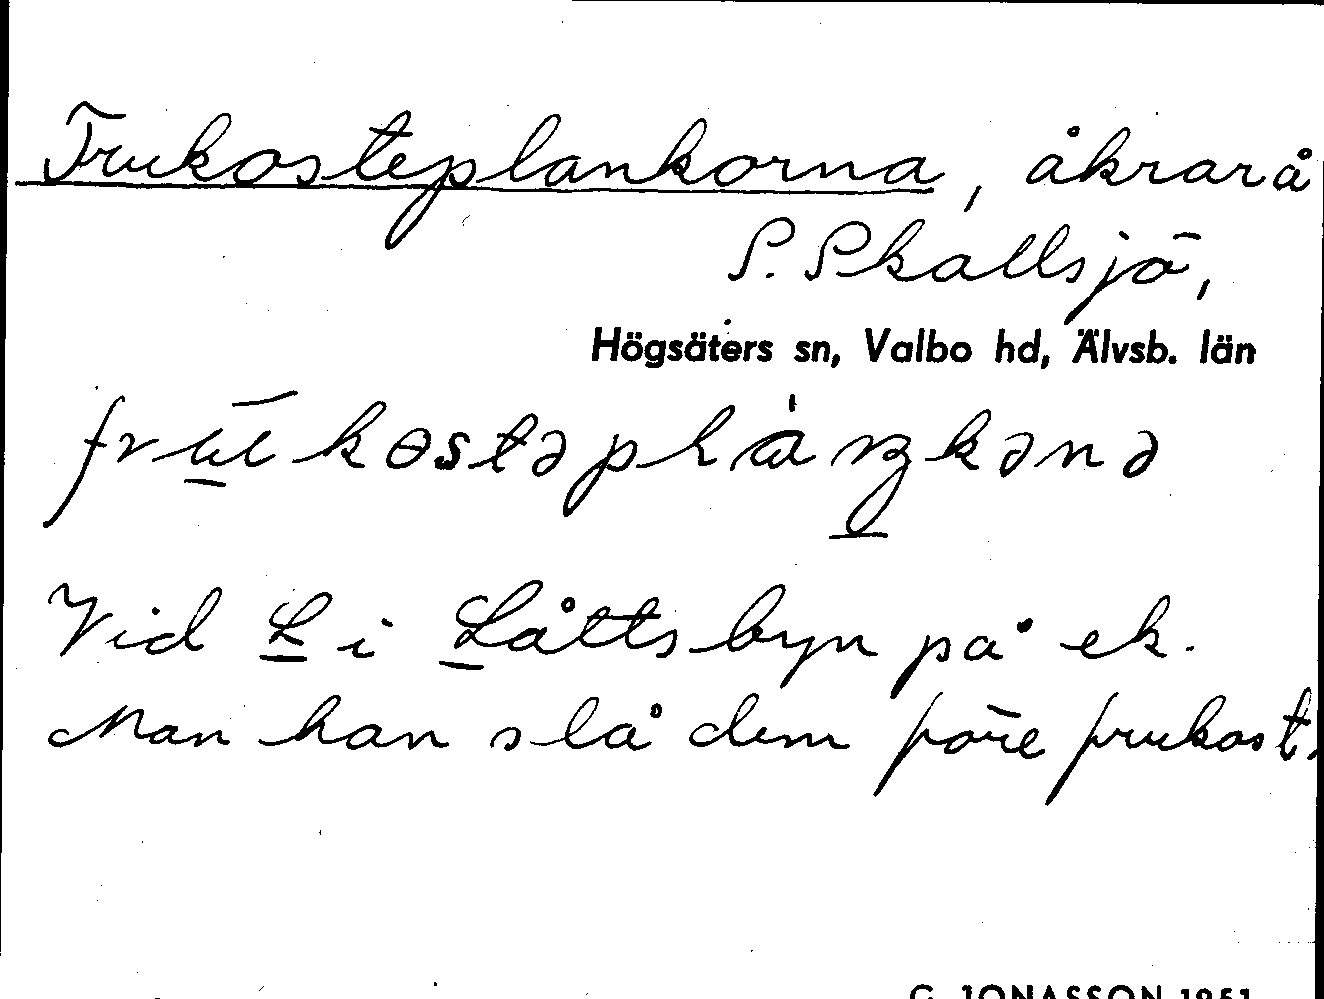 Frukosteplankorna, åkrar å
S. Skallsjö,
Högsäters sn, Valbo hd, Älvsb. län
Vid L i Låttsbyn på ek.
Man kan slå dem före frukost.
G. JONASSON 1951